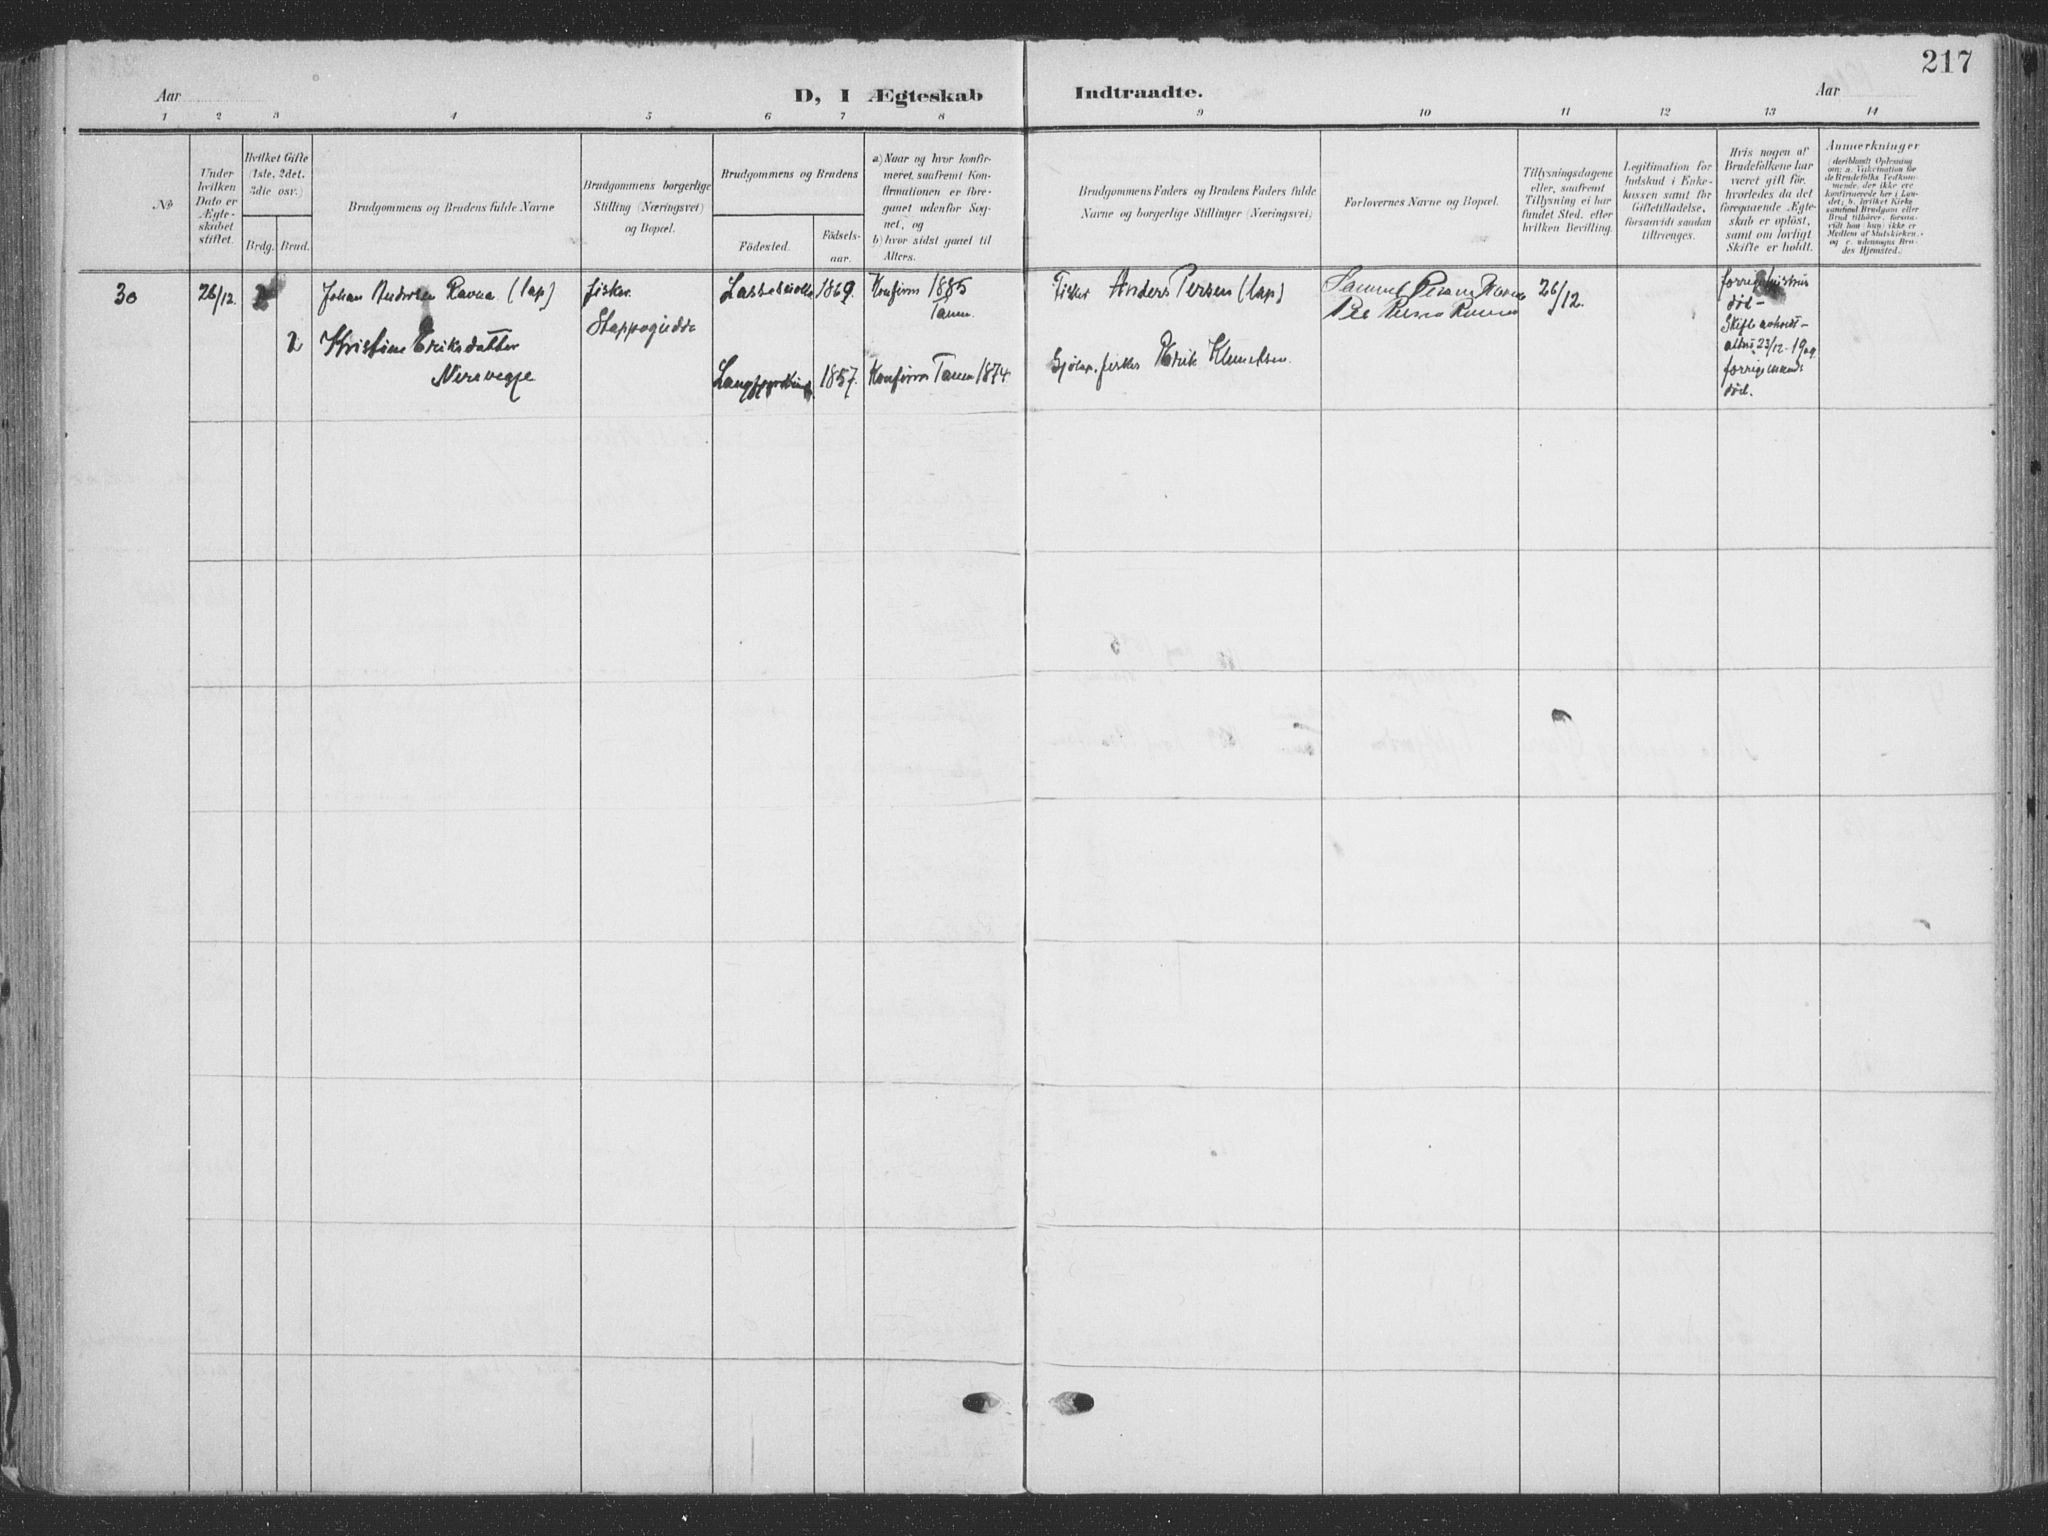 217
Aar
D, I Ægteskab Indtraadte.
Aar
1 2 3 4 5 6 7 8 9 10 11 12 13 14
No
Under
hvilken
Dato er
Ægte-
skabet
stiftet.
Hvilket Gifte
(1ste, 2det,
3die osv.)
Brdg. Brud.
Brudgommens og Brudens fulde Navne
Brudgommens borgerlige
Stilling (Næringsvei)
og Bopæl.
Brudgommens og Brudens
Födested.
Födsels-
aar.
a) Naar og hvor konfir-
meret, saafremt Kon-
firmationen er fore-
gaaet udenfor Sog-
net, og
b) hvor sidst gaaet til
Alters.
Brudgommens Faders og Brudens Faders fulde
Navne og borgerlige Stillinger (Næringsvei)
Forlovernes Navne og Bopæl.
Tillysningsdagene
eller, saafremt
Tillysning ei har
fundet Sted, efter
hvilken Bevilling.
Legitimation for
Indskud i Enke-
kassen samt for
Giftetilladelse,
forsaavidt saadan
tiltrænges.
Hvis nogen af
Brudefolkene har
været gift för,
hvorledes da det
foregaaende Ægte-
skab er oplöst,
samt om lovligt
Skifte er holdt.
Anmærkninger
(deriblandt Oplysning
om: a. Vakcination for
de Brudefolks Vedkom-
mende, der ikke ere
konfirmerede her i Lan-
det; b. hvilket Kirke-
samfund Brudgom eller
Brud tilhører, forsaa-
vidt han (hun) ikke er
Medlem af Statskirken,
og c. udensogns Bru-
des Hjemsted.
30 26/12. 2 Johan Andersen Ravna (lap) fisker 1869. Konfirm 1885 Fisker Anders Persen (lap) Samuel 26/12.
Stappogiedde
Tanen.
død-
Skifte avholdt-
2 Kristine Eriksdatter
23/12-1909.
Sjölap, fisker Erik Klemetsen.
1857. Konfirm Tanen 1874.
forrige mand
död.